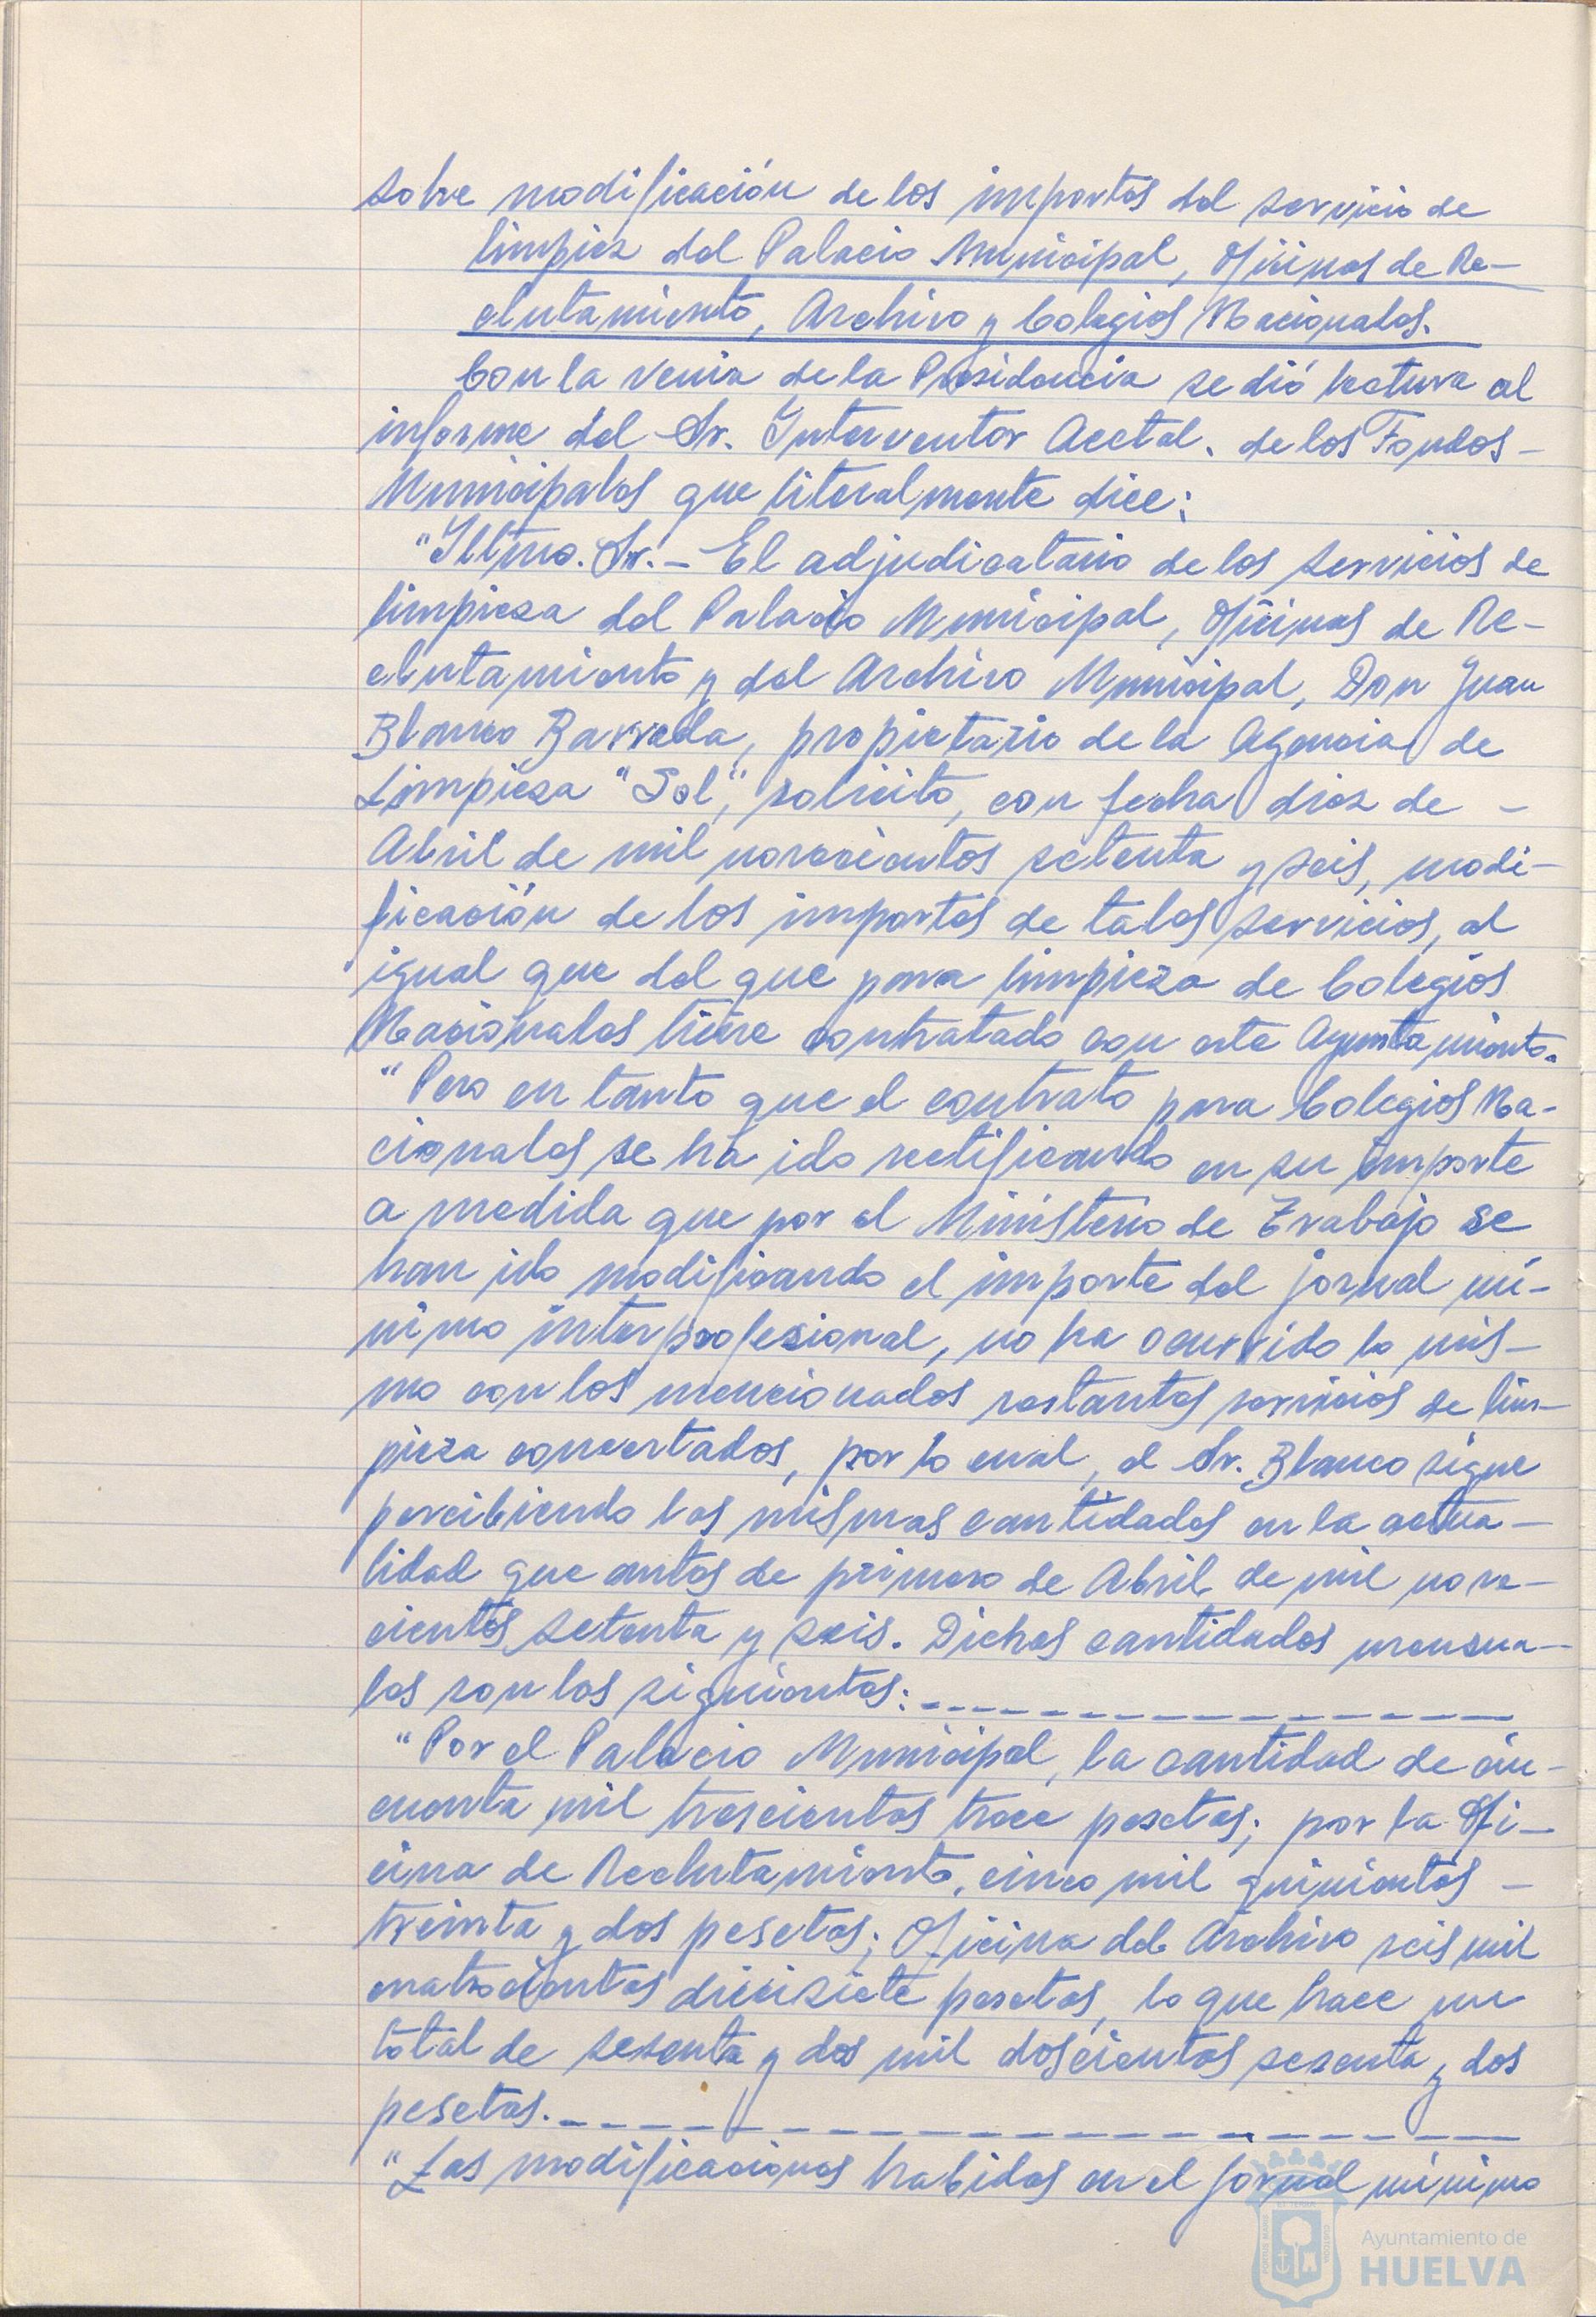 sobre modificación de los importes del servicio de
limpieza del Palacio Municipal, Oficinas de Re-
clutamiento, Archivo y Colegios Nacionales.
Con la venia de la Presidencia se dió lectura al
informe del Sr. Interventor Acctal. de los Fondos -
Municipales que literalmente dice:
"Iltmo. Sr. - El adjudicatario de los servicios de
limpieza del Palacio Municipal, Oficinas de Re-
clutamiento y del Archivo Municipal, Don Juan
Blanco Barreda, propietario de la Agencia de
Limpieza "Sol", solicitó, con fecha diez de -
Abril de mil novecientos setenta y seis, modi-
ficación de los importes de tales servicios, al
igual que del que para limpieza de Colegios
Nacionales tiene contratado con este Ayuntamiento.
"Pero en tanto que el contrato para Colegios Na-
cionales se ha ido rectificando en su importe
a medida que por el Ministerio de Trabajo se
han ido modificando el importe del jornal mí-
nimo interprofesional, no ha ocurrido lo mis-
mo con los mencionados restantes servicios de lim-
pieza concertados, por lo cual, el Sr. Blanco sigue
percibiendo las mismas cantidades en la actua-
lidad que antes de primero de Abril de mil nove-
cientos setenta y seis. Dichas cantidades mensua-
les son las siguientes: - - - - - - - - - - - - - - -
"Por el Palacio Municipal, la cantidad de cin-
cuenta mil trescientas trece pesetas; por la Ofi-
cina de Reclutamiento, cinco mil quinientas -
treinta y dos pesetas; Oficina del Archivo seis mil
cuatrocientas diecisiete pesetas, lo que hace un
total de sesenta y dos mil doscientas sesenta y dos
pesetas. - - - - - - - - - - - - - - - - - - - - - -
"Las modificaciones habidas en el jornal mínimo
Ayuntamiento de
HUELVA